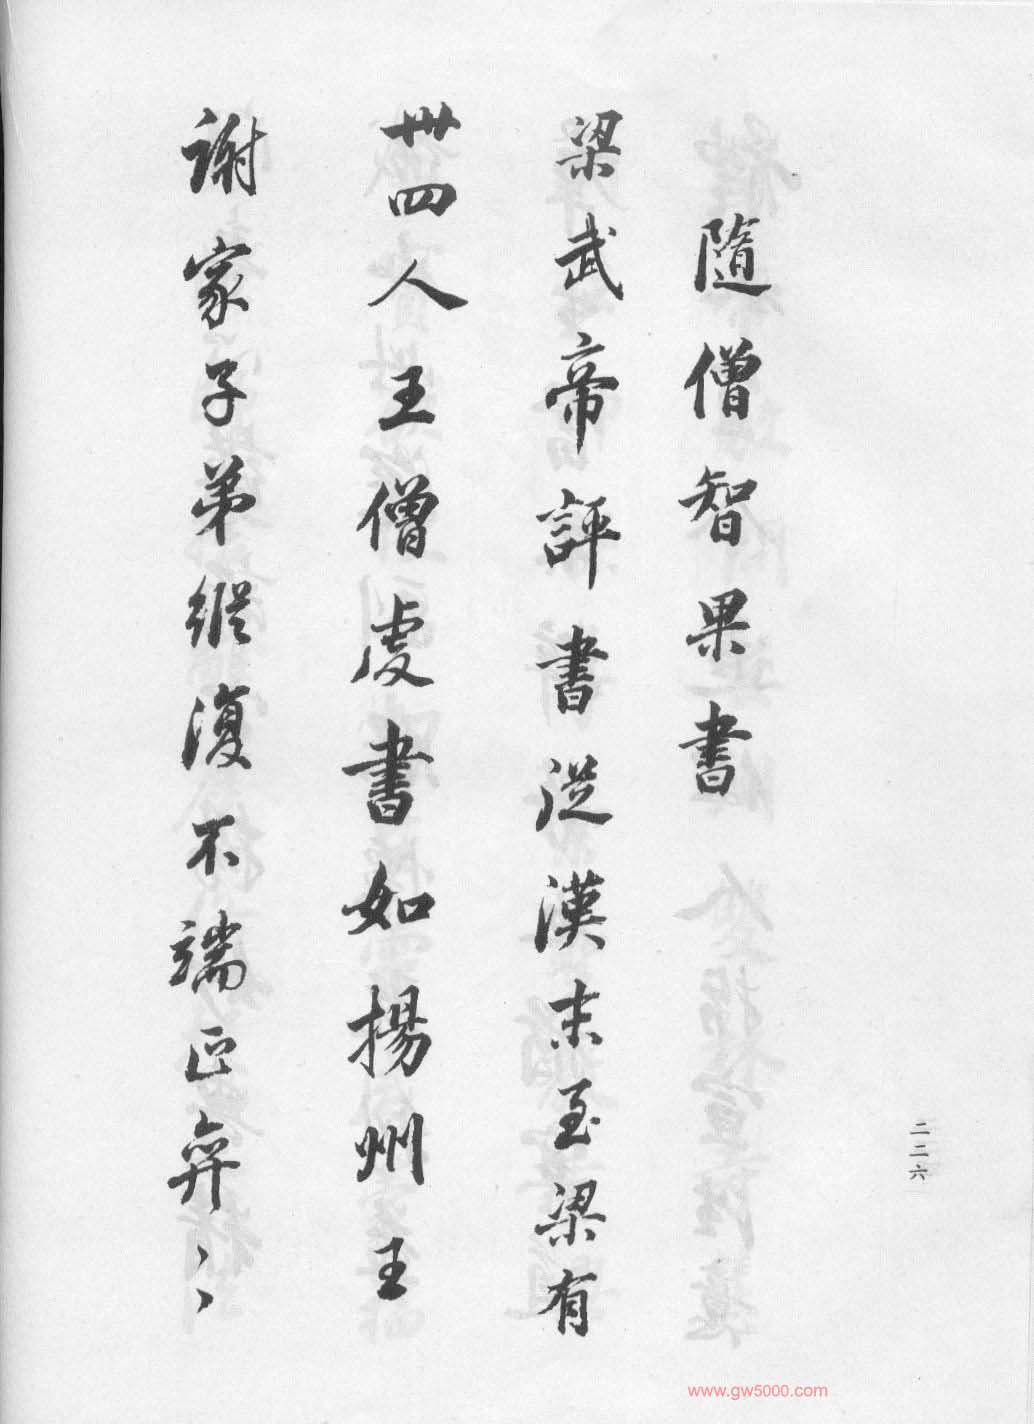 隨僧智果書
梁武帝評書從漢末至梁有
卅四人王僧虔書如揚州王
謝家子弟縱復不端正奕〻
二二六
www.gw5000.com